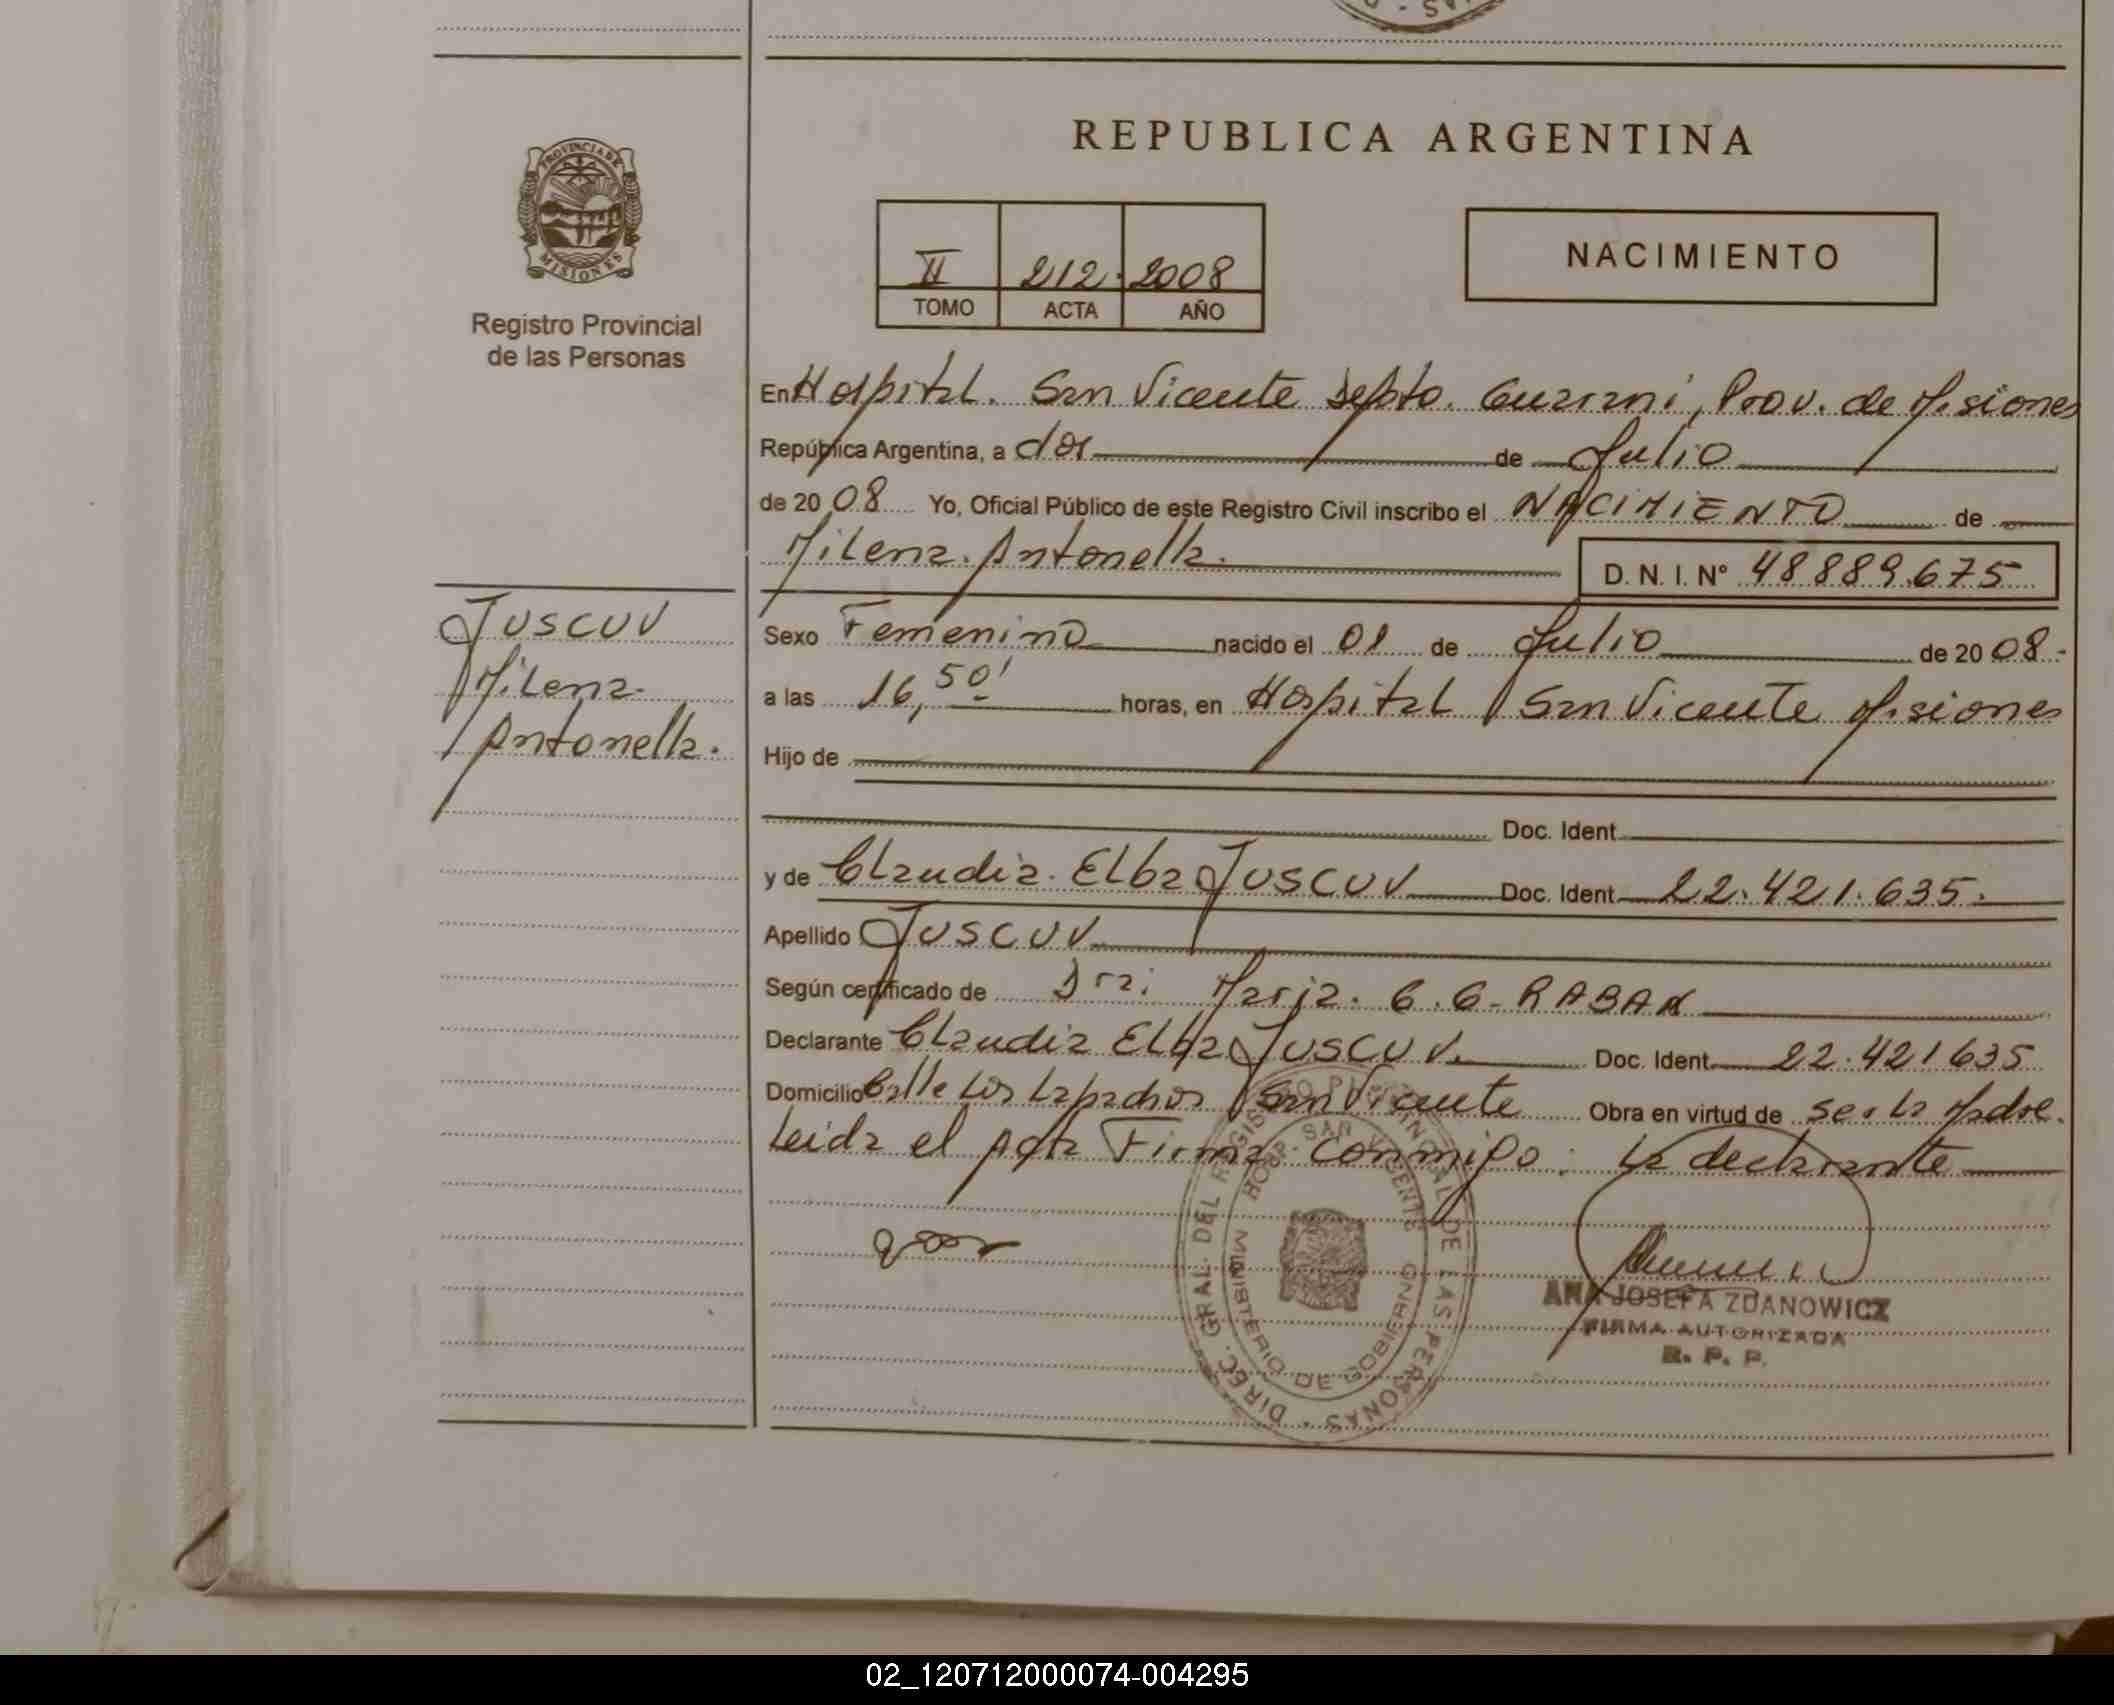 REPUBLICA ARGENTINA
PROVINCIA DE
MISIONES
Registro Provincial
de las Personas
II 212. 2008
TOMO ACTA AÑO
NACIMIENTO
En Hospital. San Vicente Depto. Guarani, Prov. de Misiones
República Argentina, a dos de Julio
de 20 08 Yo, Oficial Público de este Registro Civil inscribo el NACIMIENTO de
Milena. Antonella.
D. N. I. Nº 48889.675
JUSCUV
Milena.
Antonella.
Sexo Femenino nacido el 01 de Julio de 20 08.-
a las 16,50' horas, en Hospital San Vicente Misiones
Hijo de
Doc. Ident.
y de Claudia. Elba JUSCUV Doc. Ident. 22.421.635.
Apellido JUSCUV
Según certificado de Dra: Maria. G.G. RABAN
Declarante Claudia Elba JUSCUV. Doc. Ident. 22.421635
Domicilio Calle Los Lapachos San Vicente Obra en virtud de ser La Madre.
Leida el Acta Firma Conmigo: La declarante
DIREC. GRAL. DEL REGISTRO PROVINCIAL DE LAS PERSONAS
HOSP. SAN VICENTE
MINISTERIO DE GOBIERNO
ANA JOSEFA ZDANOWICZ
FIRMA AUTORIZADA
R. P. P.
02_120712000074-004295